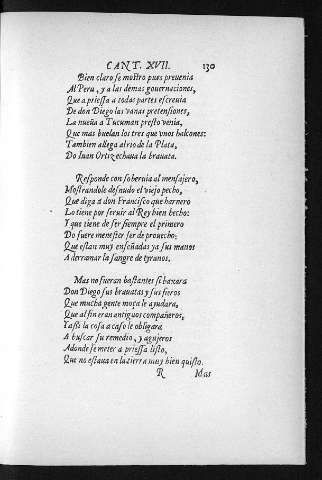 CANT. XVII. 130
Bien claro se mostro pues preuenia
Al Peru, y a las demas gouernaciones,
Que a priessa a todas partes escreuia
De don Diego las vanas pretensiones,
La nueua a Tucuman presto venia,
Que mas buelan los tres que vnos halcones:
Tambien allega al rio de la Plata,
Do Iuan Ortiz echaua la brauata.
Responde con soberuia al mensajero,
Mostrandole desnudo el viejo pecho,
Que diga a don Francisco que harnero
Lo tiene por seruir al Rey bien hecho:
Y que tiene de ser siempre el primero
Do fuere menester ser de prouecho:
Que estan muy enseñadas ya sus manos
A derramar la sangre de tyranos.
Mas no fueran bastantes si baxara
Don Diego sus brauatas y sus fieros
Que mucha gente moça le ayudara,
Que al fin eran antiguos compañeros,
Y assi la cosa a caso le obligara
A buscar su remedio, y agujeros
Adonde se meter a priessa listo,
Que no estaua en la tierra muy bien quisto.
R Mas